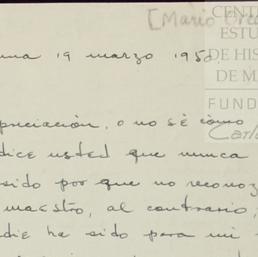 [Mario
CENT
ESTU
DE HIS
DE M
FUND
na 19 marzo 195
preciación, o no sé como
dice usted que nunca
sido por que no reconoz
maestro, al contrario,
die ha sido para mi